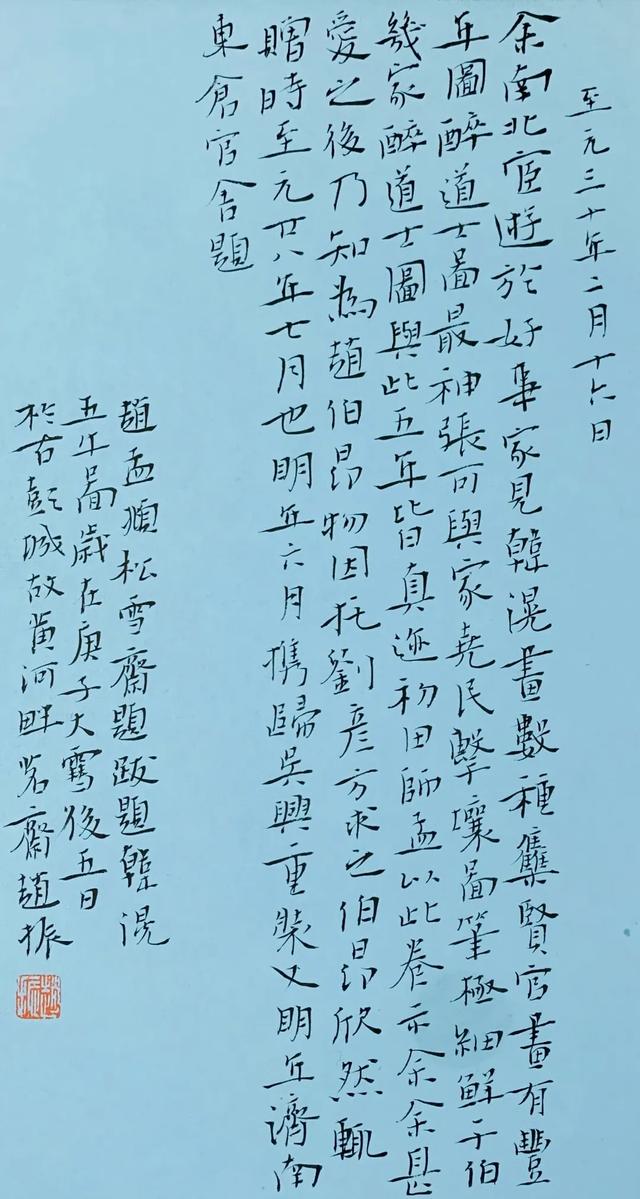 至元三十年二月十六日
余南北宦遊於好事家見韓滉畫數種集賢官畫有豐
年圖醉道士啚最神張可與家堯民擊壤啚筆極細鮮于伯
幾家醉道士圖與此五牛皆真迹初田師孟以此卷示余余甚
愛之後乃知為趙伯昂物因托劉彦方求之伯昂欣然輒
贈時至元廿八年七月也明年六月携歸吳興重裝又明年濟南
東倉官舍題
趙孟頫松雪齋題跋題韓滉
五牛啚歲在庚子大雪後五日
於古彭城故黄河畔茗齋趙振